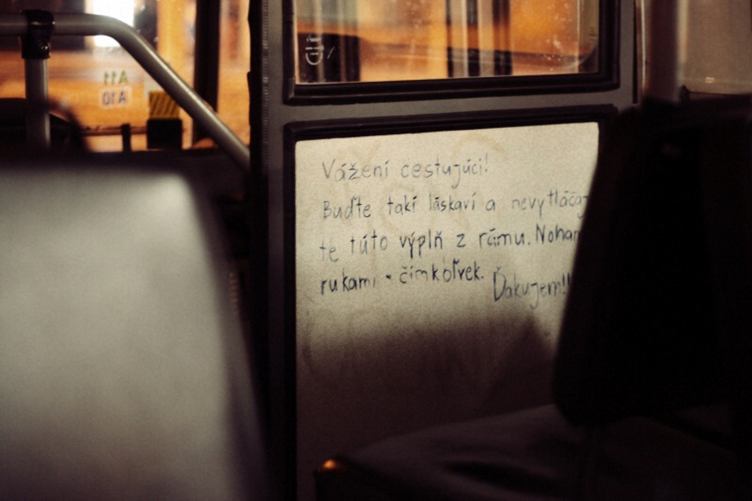 A11
A10
Vážení cestujúci!
Buďte takí láskaví a nevytláčaj
te túto výplň z rámu. Noham
rukami - čímkoľvek.
Ďakujem!!